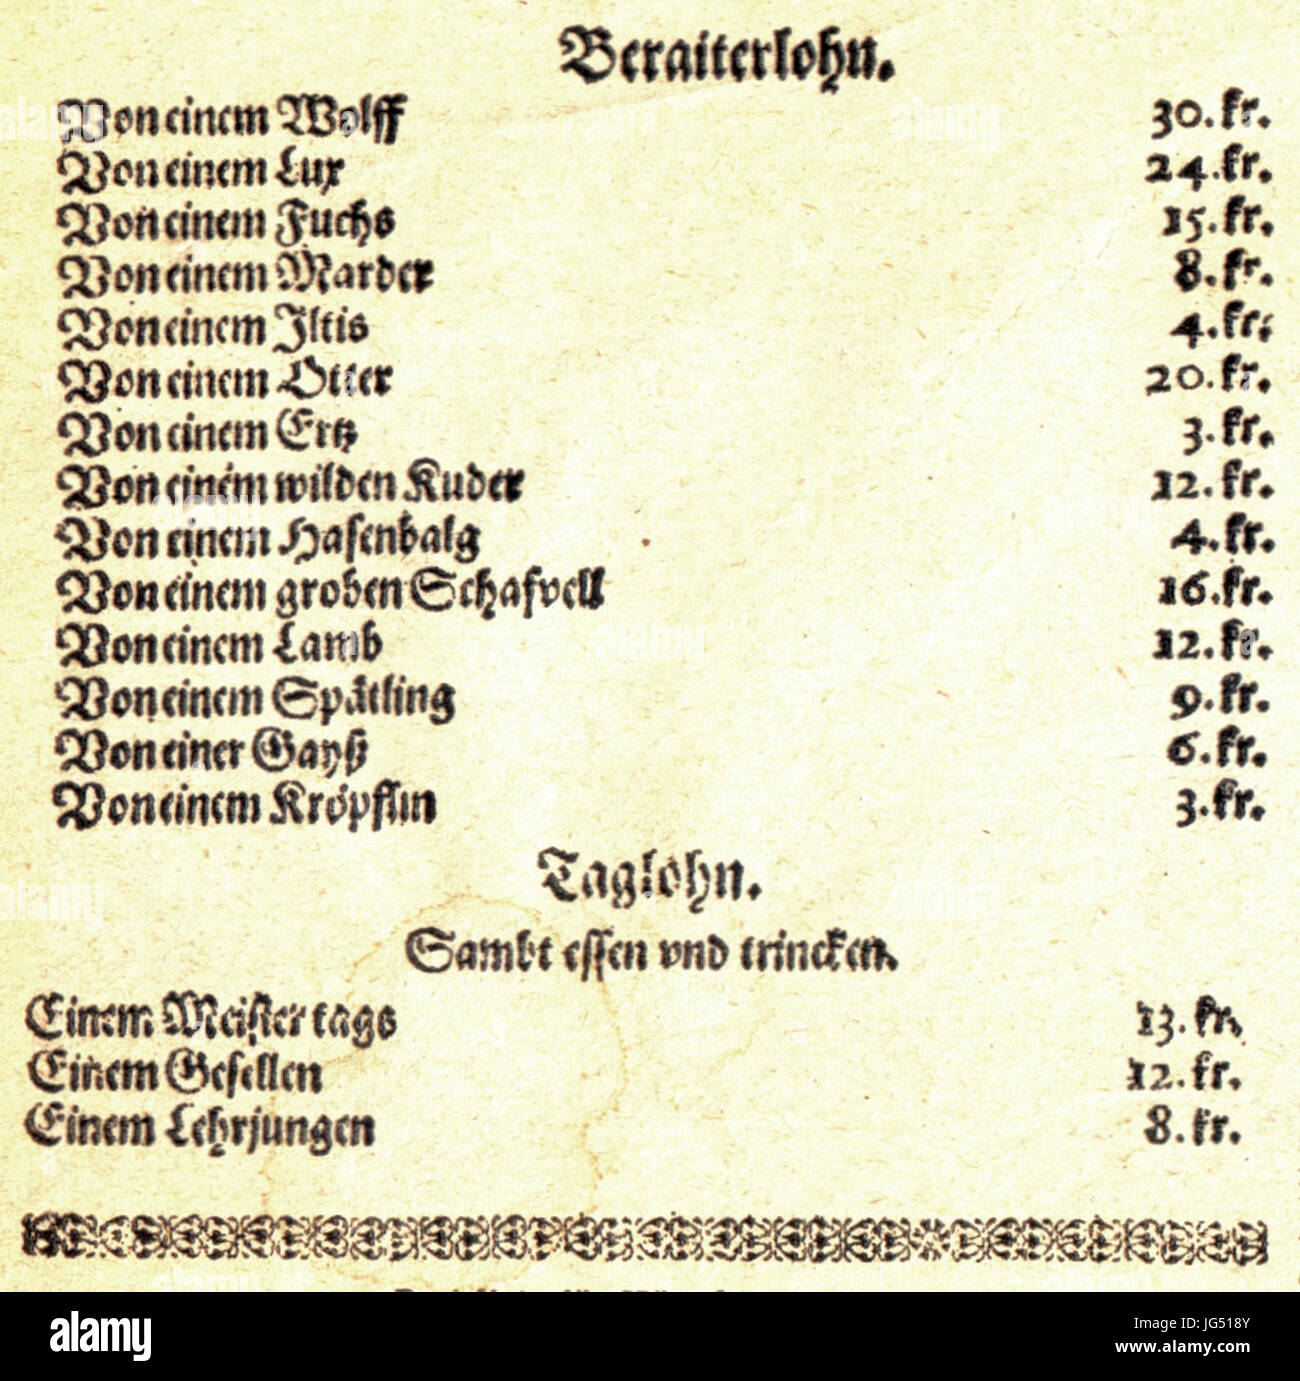 Beraiterlohn.
Von einem Wolff 30. kr.
Von einem Lux 24. kr.
Von einem Fuchs 15. kr.
Von einem Marder 8. kr.
Von einem Iltis 4. kr.
Von einem Otter 20. kr.
Von einem Ertz 3. kr.
Von einem wilden Kuder 12. kr.
Von einem Hasenbalg 4. kr.
Von einem groben Schafvell 16. kr.
Von einem Lamb 12. kr.
Von einem Spätling 9. kr.
Von einer Gayß 6. kr.
Von einem Kröpflin 3. kr.
Taglohn.
Sambt essen vnd trincken.
Einem Meister tags 13. kr.
Einem Gesellen 12. kr.
Einem Lehrjungen 8. kr.
alamy
Image ID: JG518Y
www.alamy.com